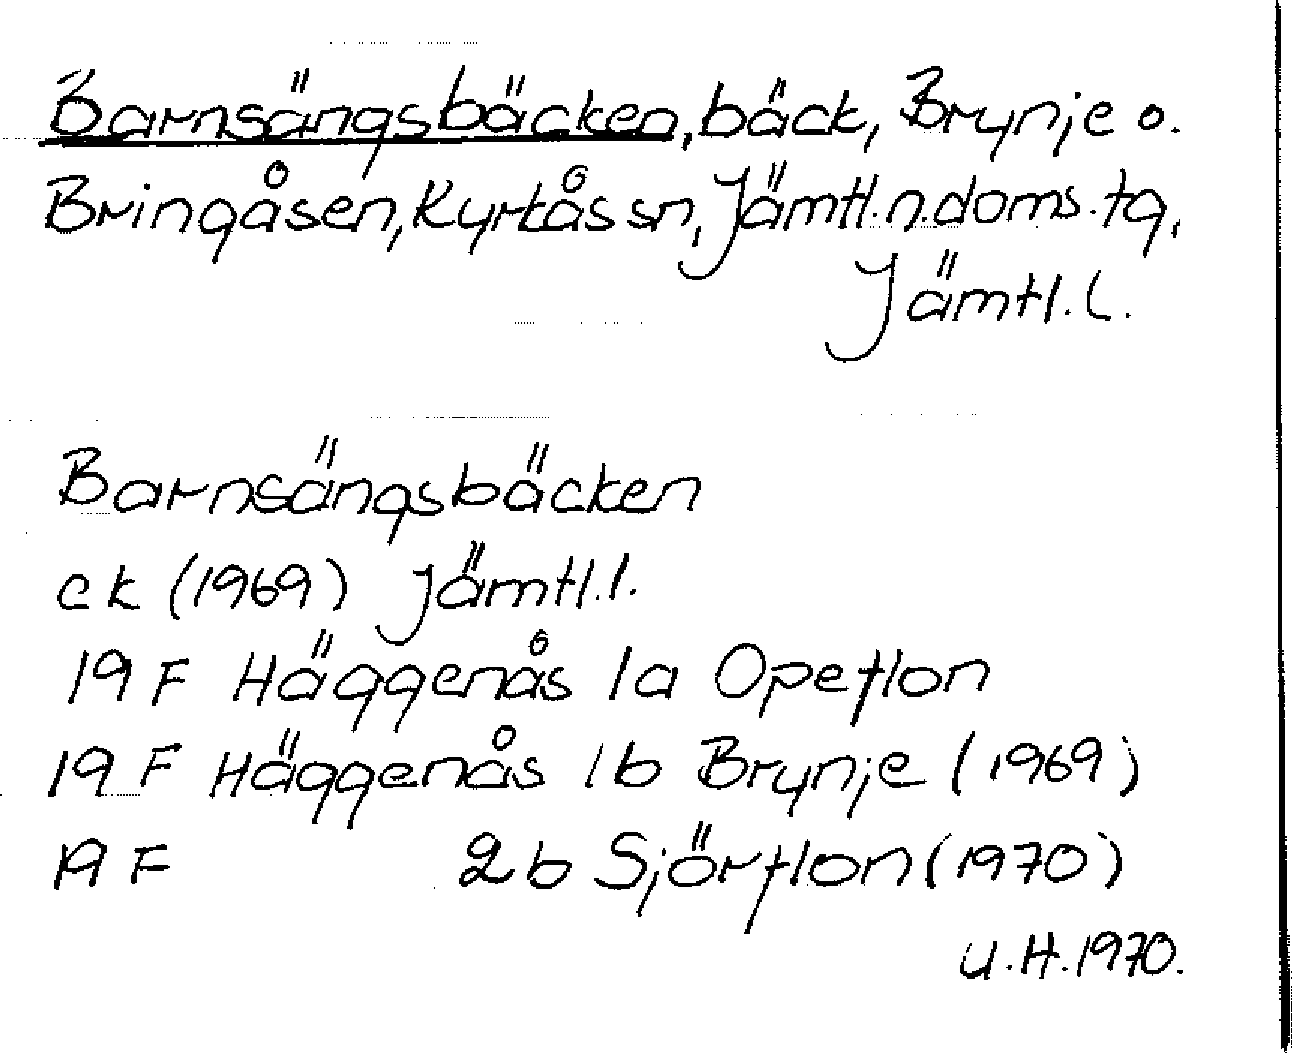 Barnsängsbäcken, bäck, Brynje o.
Bringåsen, Kyrkås sn, Jämtl. n. doms. tg,
Jämtl. l.
Barnsängsbäcken
ek (1969) Jämtl. l.
19 F Häggenås 1a Opeflon
19 F Häggenås 1b Brynje (1969)
19 F 2b Sjörflon (1970)
U.H. 1970.